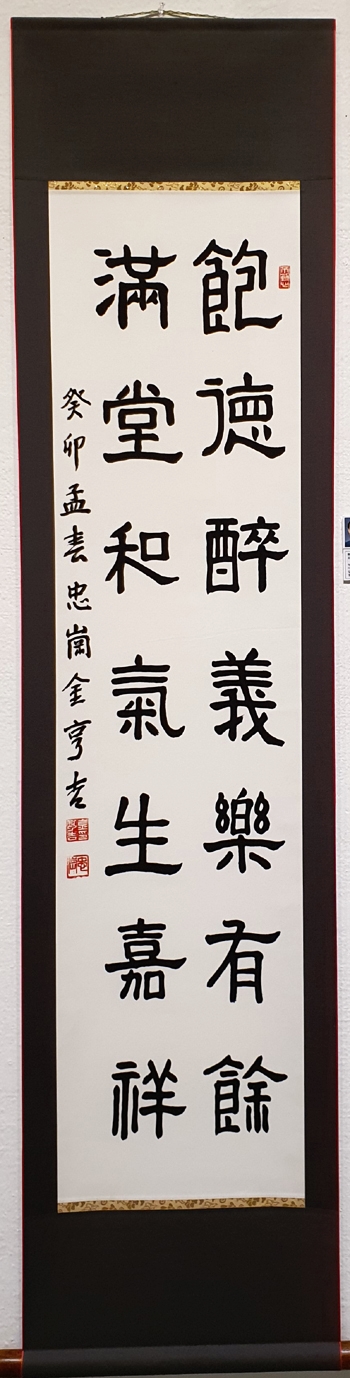 飽德醉義樂有餘
滿堂和氣生嘉祥
癸卯孟春忠崗金亨吉